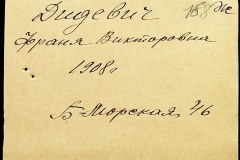 Дидевич
Франя Викторовна
1908 г
Б-Морская 46